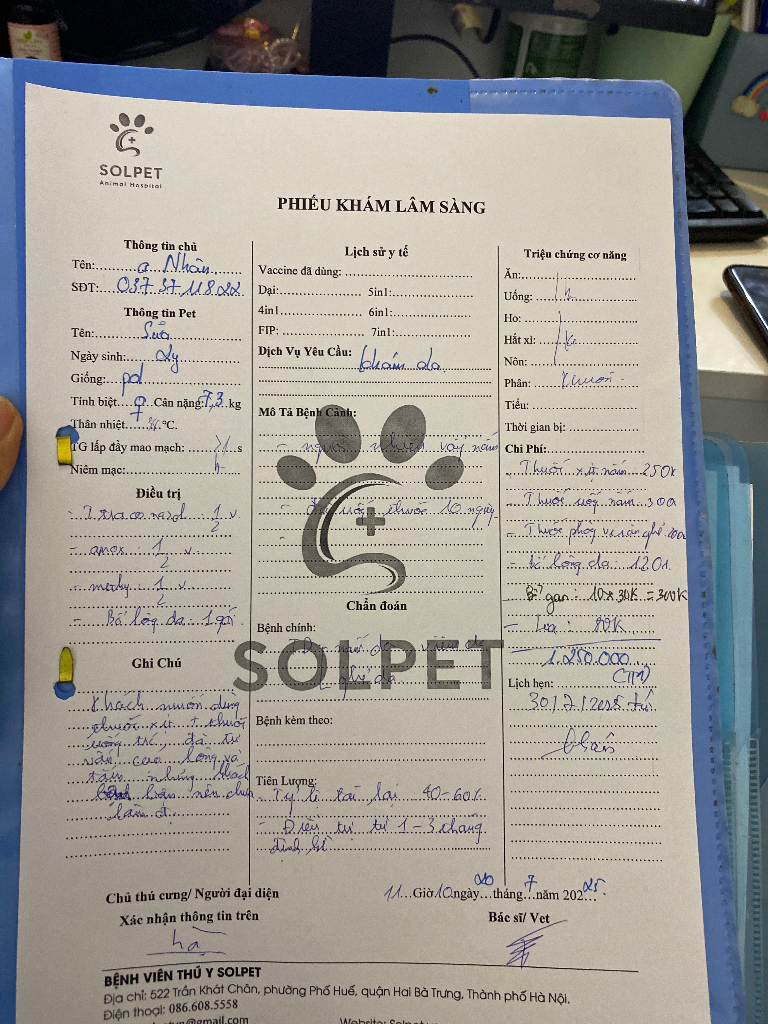 SOLPET
Animal Hospital
PHIẾU KHÁM LÂM SÀNG
Thông tin chủ
Tên: a Nhân
SĐT: 037 37 118 22
Thông tin Pet
Tên: Sữa
Ngày sinh: 2y
Giống: pd
Tính biệt: ♀ Cân nặng: 7,3 kg
Thân nhiệt °C.
TG lấp đầy mao mạch: >1 s
Niêm mạc: h
Điều trị
- Itraconazol : 1/2 v
- amox : 1/2 v
- : 1/2 v
- Bổ lông da : 1 gói
Ghi Chú
Khách muốn dùng
thuốc xịt + thuốc
uống trc, đã tư
vấn cạo lông và
tắm nhưng khách
bận nên chưa
làm đ.
Lịch sử y tế
Vaccine đã dùng:
Dại: 5in1:
4in1 6in1:
FIP: 7in1:
Dịch Vụ Yêu Cầu: khám da
Mô Tả Bệnh Cảnh:
- nhiễm vảy nấm
- đã uốc thuốc 10 ngày
SOLPET
Chẩn đoán
Bệnh chính:
TD: nấm da, viêm da
ghẻ da
Bệnh kèm theo:
Tiên Lượng:
- Tỷ lệ tái lại 40-60%
- Điều trị từ 1-3 tháng
Triệu chứng cơ năng
Ăn:
Uống: h
Ho:
Hắt xì: k
Nôn:
Phân:
Tiểu:
Thời gian bị:
Chi Phí:
- Thuốc xịt nấm 250k
- Thuốc uống nấm 300
- Thuốc phòng ve rận ghẻ
- bổ lông da : 120k
- Bổ gan : 10 x 30K = 300K
- : 80K
1.250.000
(TM)
Lịch hẹn:
30/7/2025
Chủ thú cưng/ Người đại diện
Xác nhận thông tin trên
hạ
11 Giờ 10 ngày 20 tháng 7 năm 202 25
Bác sĩ/ Vet
BỆNH VIỆN THÚ Y SOLPET
Địa chỉ: 522 Trần Khát Chân, phường Phố Huế, quận Hai Bà Trưng, Thành phố Hà Nội.
Điện thoại: 086.608.5558